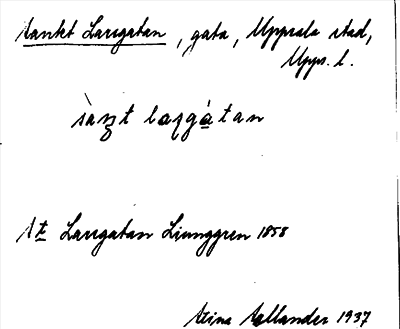 Sankt Larsgatan, gata, Uppsala stad,
Upps. l.
sàŋt laʂgátan
St Larsgatan Ljunggren 1858
Stina Sallander 1937